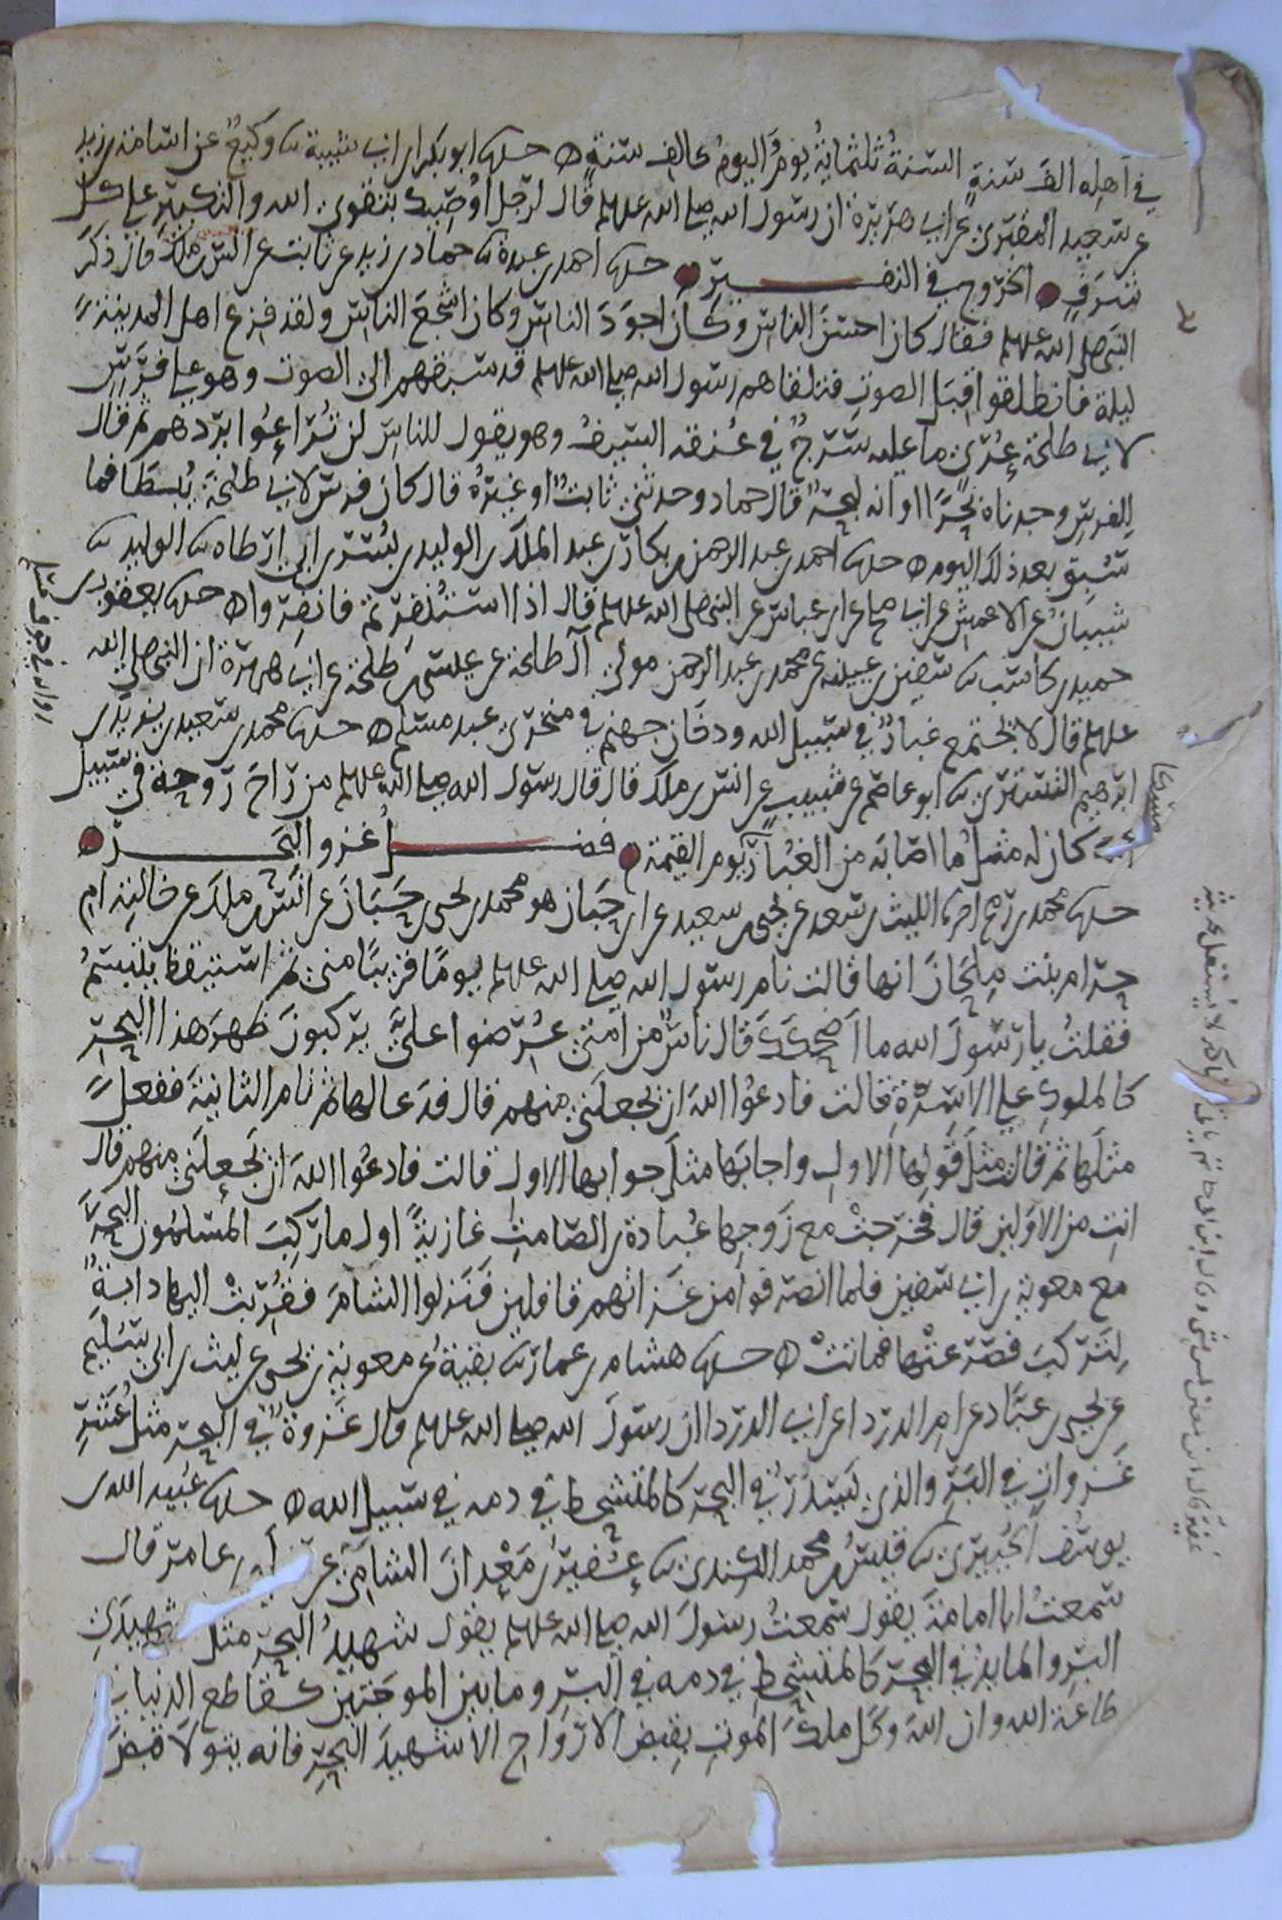 في اهله الف سنةٍ السنةُ ثلثمائةُ يومٍ اليومُ كالف سنةٍ ه حدثنا ابو بكر ابن ابي شيبة ثنا وكيعٌ عن اسامة بن زيد
عن سعيد المقبري عن ابي هريرة ان رسول الله صلى الله علیہ وسلم قال لرجل اوصيك بتقوى الله والتكبير على كل
شَرَفٍ الخروج في النفــير حدثنا احمد بن عبدة ثنا حماد بن زيد عن ثابت عن انس بن ملك قال ذكر
النبي صلى الله عليه وسلم فقال كان احسن الناس وكان اجوَدَ الناس وكان اشجعَ الناس ولقد فزع اهل المدينة
ليلة فانطلقوا قِبَل الصوت فتلقاهم رسول الله صلى الله عليه وسلم قد سبقهم الى الصوت وهو على فرس
لابي طلحة عُرْيٍ ما عليه سَرْجٌ في عنقه السيفُ وهو يقول للناس لن تُراعُوا يردّهم ثم قال
للفرس وجدناه بحرًا او انه لبحرٌ قال حماد وحدثني ثابتٌ او غيرُه قال كان فرس لابي طلحة يُبَطَّأ فما
سُبق بعد ذلك اليوم ه حدثنا احمد بن عبد الرحمن بن بكار بن عبد الملك بن الوليد بن بُسر بن ابي ارطاه ثنا الوليد ثنا
شيبانُ عن الاعمش عن ابي صالح عن ابن عباس عن النبي صلى الله عليه وسلم قال اذا استُنفرتم فانفروا ه حدثنا يعقوب بن
حميد بن كاسب ثنا سفين بن عيينة عن محمد بن عبد الرحمن مولى آل طلحة عن عيسى بن طلحة عن ابي هريرة ان النبي صلى الله
عليه وسلم قال لا يجتمع غبارٌ في سبيل الله ودخان جهنم في منخري عبد مسلم ه حدثنا محمد بن سعيد بن يزيد بن
ابرهيم التستري ثنا ابو عاصم عن شبيب عن انس بن ملك قال قال رسول الله صلى الله عليه وسلم من راحَ رَوحةً في سبيل
الله كان له مثلُ ما اصابَه من الغبار مسكا يوم القيمة فضــل غزو البحــر
حدثنا محمد بن رمح اخبرنا الليث بن سعد عن يحيى بن سعيد عن ابن حَبان هو محمد بن يحيى بن حَبَّان عن انس بن ملك عن خالته ام
حرام بنت مِلحان انها قالت نام رسول الله صلى الله عليه وسلم يومًا قريبًا مني ثم استيقظ يبتسمُ
فقلتُ يا رسولَ الله ما اضحككَ قال ناسٌ من امتي عُرضوا عليَّ يركبون ظهرَ هذا البحرِ
كالملوكِ على الاسِرَّةِ قالت فادعُ الله ان يجعلَني منهم قال فدعا لها ثم نام الثانيةَ ففعل
مثلَها ثم قالت مثلَ قولِها الاولِ واجابَها مثلَ جوابها الاولِ قالت فادعُ اللهَ ان يجعلَني منهم قال
انتِ من الاولين قال فخرجتْ مع زَوجِها عُبادة بن الصامتِ غازيةً اول ما ركبَ المسلمون البحرَ
مع معوية بن ابي سفين فلما انصرفوا من غزاتهم قافلين فنزلوا الشامَ فقُرّبتْ اليها دابةٌ
لتركبَ فصرعتْها فماتتْ ه حدثنا هشام بن عمار ثنا بقيةُ عن معوية بن يحيى عن ليث بن ابي سُليم
عن يحيى بن عبَّاد عن ام الدردا عن ابي الدردا ان رسولَ الله صلى الله عليه وسلم قال غزوةٌ في البحر مثلُ عشرِ
غزواتٍ في البَرِّ والذي يَسدَرُ في البحر كالمتشحط في دمه في سبيل الله ه حدثنا عُبيد الله بن
يوسف الجُبيري ثنا قيسُ بن محمد الكندي ثنا عُفَير بن مَعْدان الشامي عن سليم بن عامر قال
سمعتُ ابا امامةَ يقول سمعتُ رسولَ الله صلى الله عليه وسلم يقول شهيدُ البحر مثل شهيدَيِ
البر والمايدُ في البحر كالمتشحط في دمه في البر وما بين الموجتين كقاطع الدنيا في
طاعة الله وان اللهَ وكّل ملكَ الموتِ بقبض الارواح الا شهيدَ البحرِ فانه يتولا قبضَ